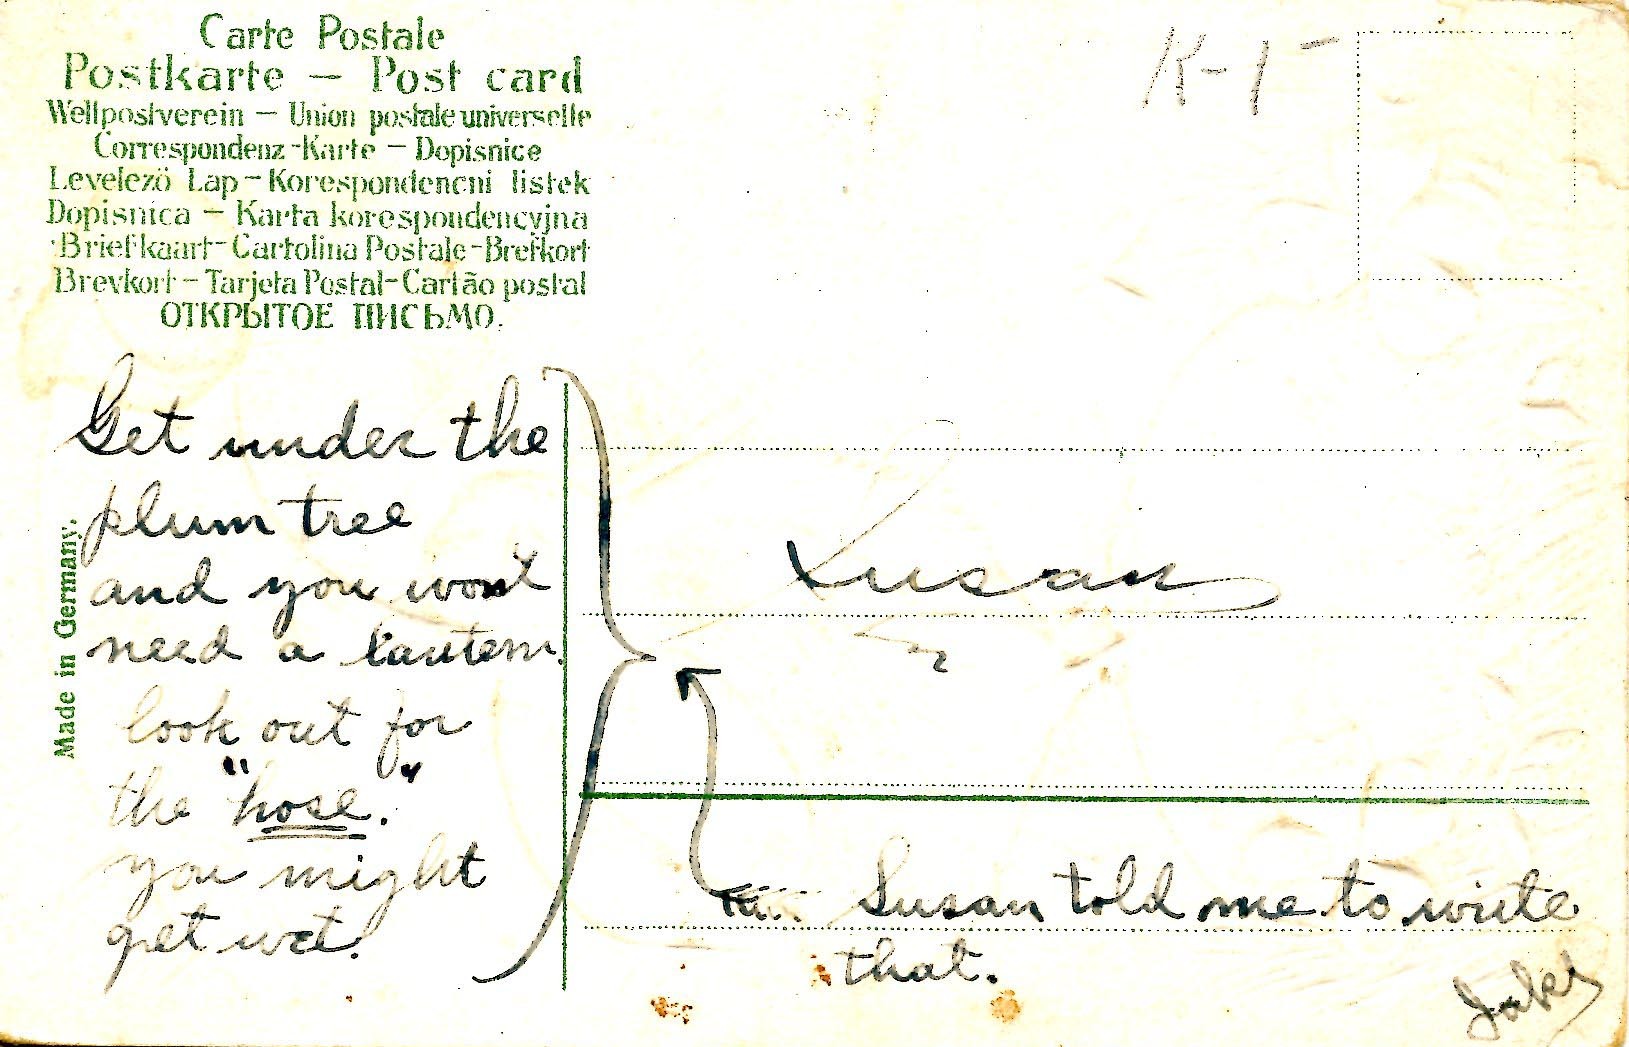 Carte Postale
Postkarte — Post card
Weltpostverein — Union postale universelle
Correspondenz-Karte — Dopisnice
Levelező Lap — Korespondencni listek
Dopisnica — Karta korespondencyjna
Briefkaart - Cartolina Postale - Brefkort
Brevkort — Tarjeta Postal - Cartão postal
ОТКРЫТОЕ ПИСЬМО.
K-1-
Made in Germany.
Get under the
plum tree
and you wont
need a lantern.
look out for
the "hose."
you might
get wet.
Susan
Susan told me to write
that.